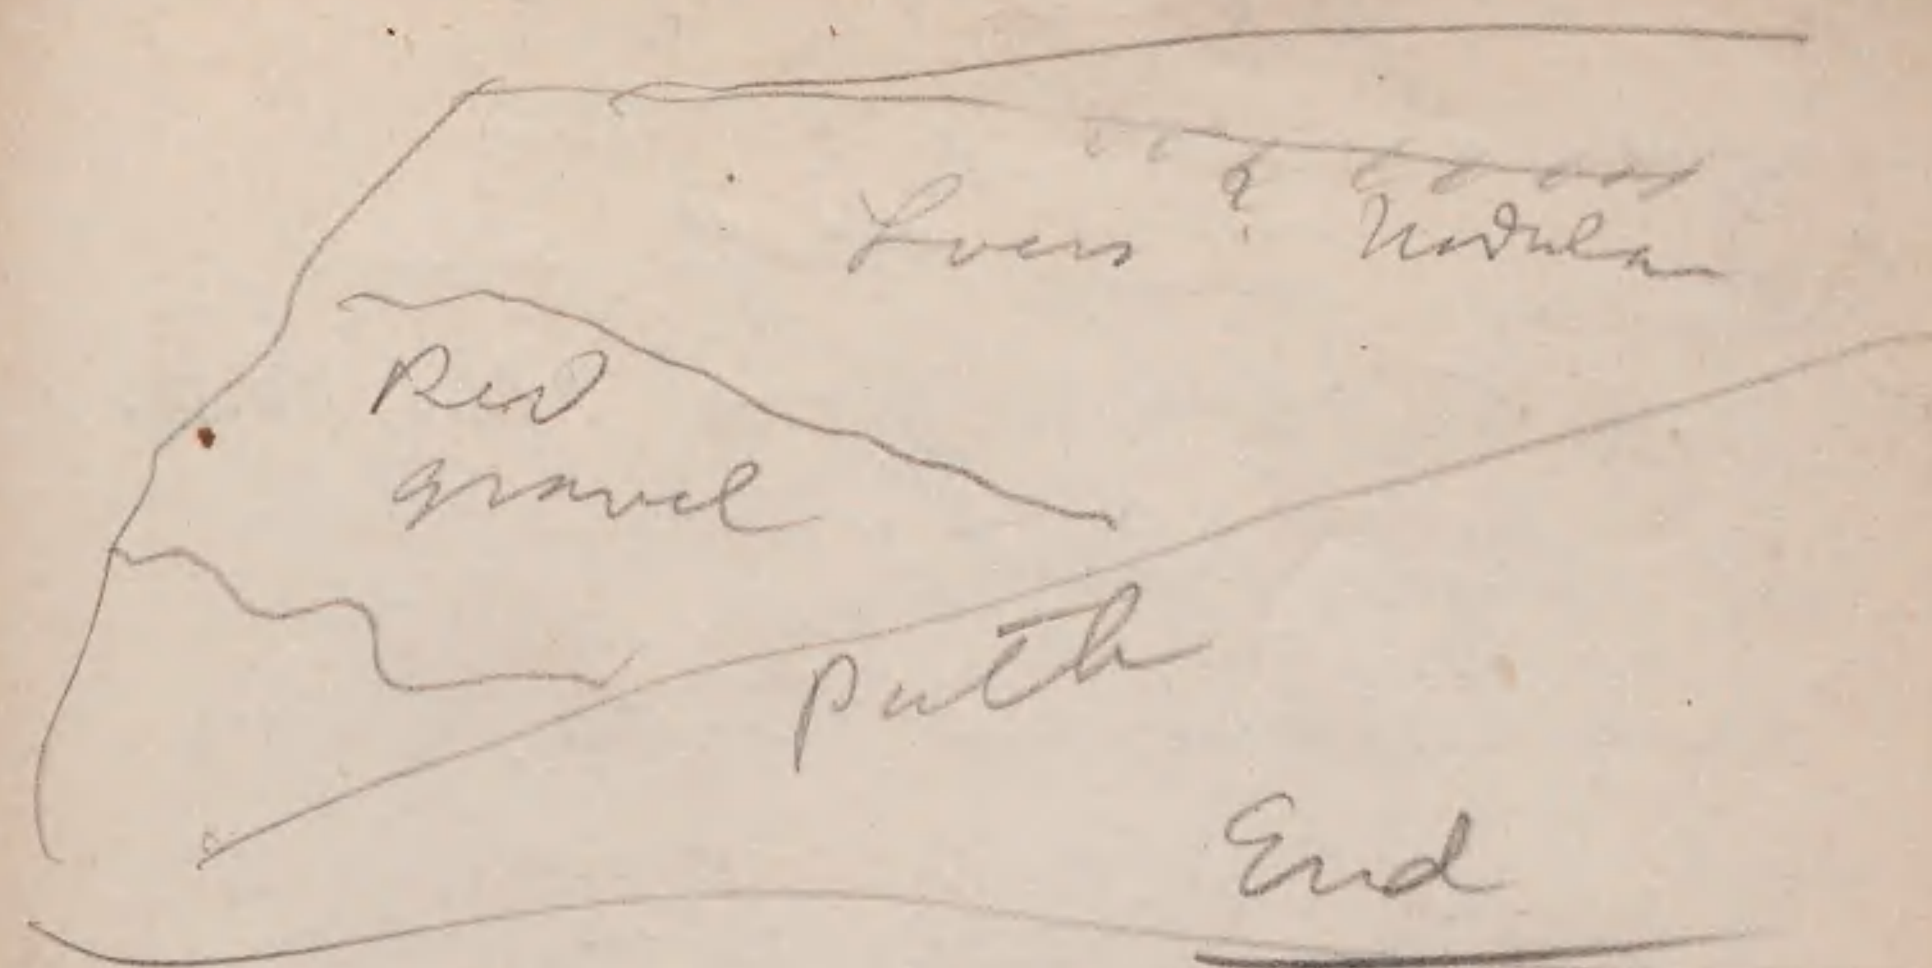 Loess ? Nodular
Red
gravel
path
End